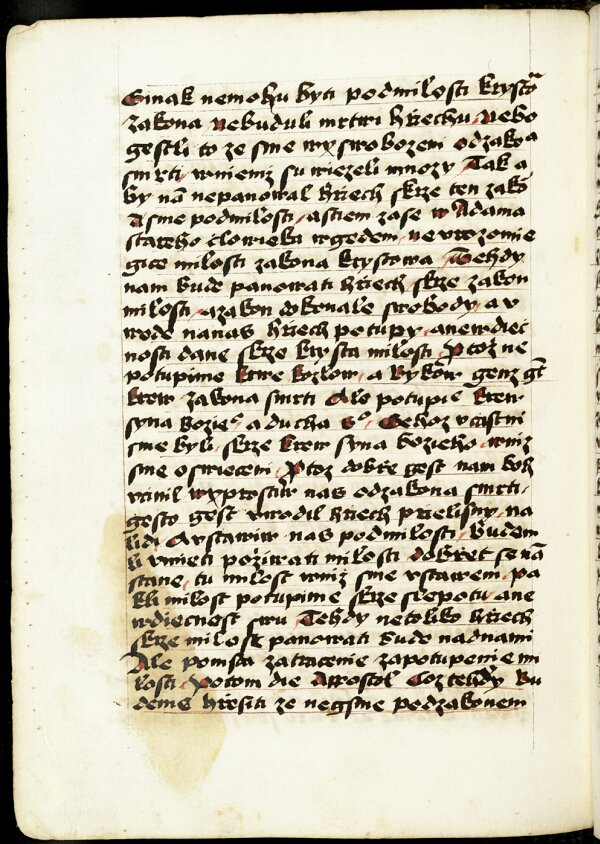 Ginak nemohu byti podmilosti krysto
zakona nebuduli mrtwi hrziechu nebo
gestli to ze sme wyswobozeni odzakona
smrti wniemz su wiezeli mnozy Tak a
by nam nepanowal hrziech skrze ten zako
A sme podmilosti a stiem zase w Adama
stareho clowieka wgdem ne wrozumie
gice milosti zakona krystowa Tehdy
nam bude panowati hrziech skrze zakon
milosti a zakon dokonale swobody a v
wode nanas hrziech potupy a newdiec
nosti dane skrze krysta milosti Ptoz ne
potupime krwe kozlow a bykow genz gt
krew zakona smrti Ale potupie krew
syna bozieo a ducha so Gehoz vcastni
sme byli skrze krew syna bozieho wniz
sme oswieceni Ptoz dobrze gest nam boh
vcinil wyprostiw nas odzakona smrti
gesto gest vrodil hrziech przielisny na
lidi A vstawiw nas podmilosti budem
li vmieti pozirwati milosti dobrzet se na
stane tu milost wniz sme vstawem pa
kli milost potupime skrze slepotu a ne
wdiecnost swu Tehdy netoliko hrziech
skrze milost panowati bude nadnami
Ale pomsta zatracenie zapotupenie mi
losti Potom die Appostol Coz tehdy bu
deme hrziesiti ze negsme podzakonem